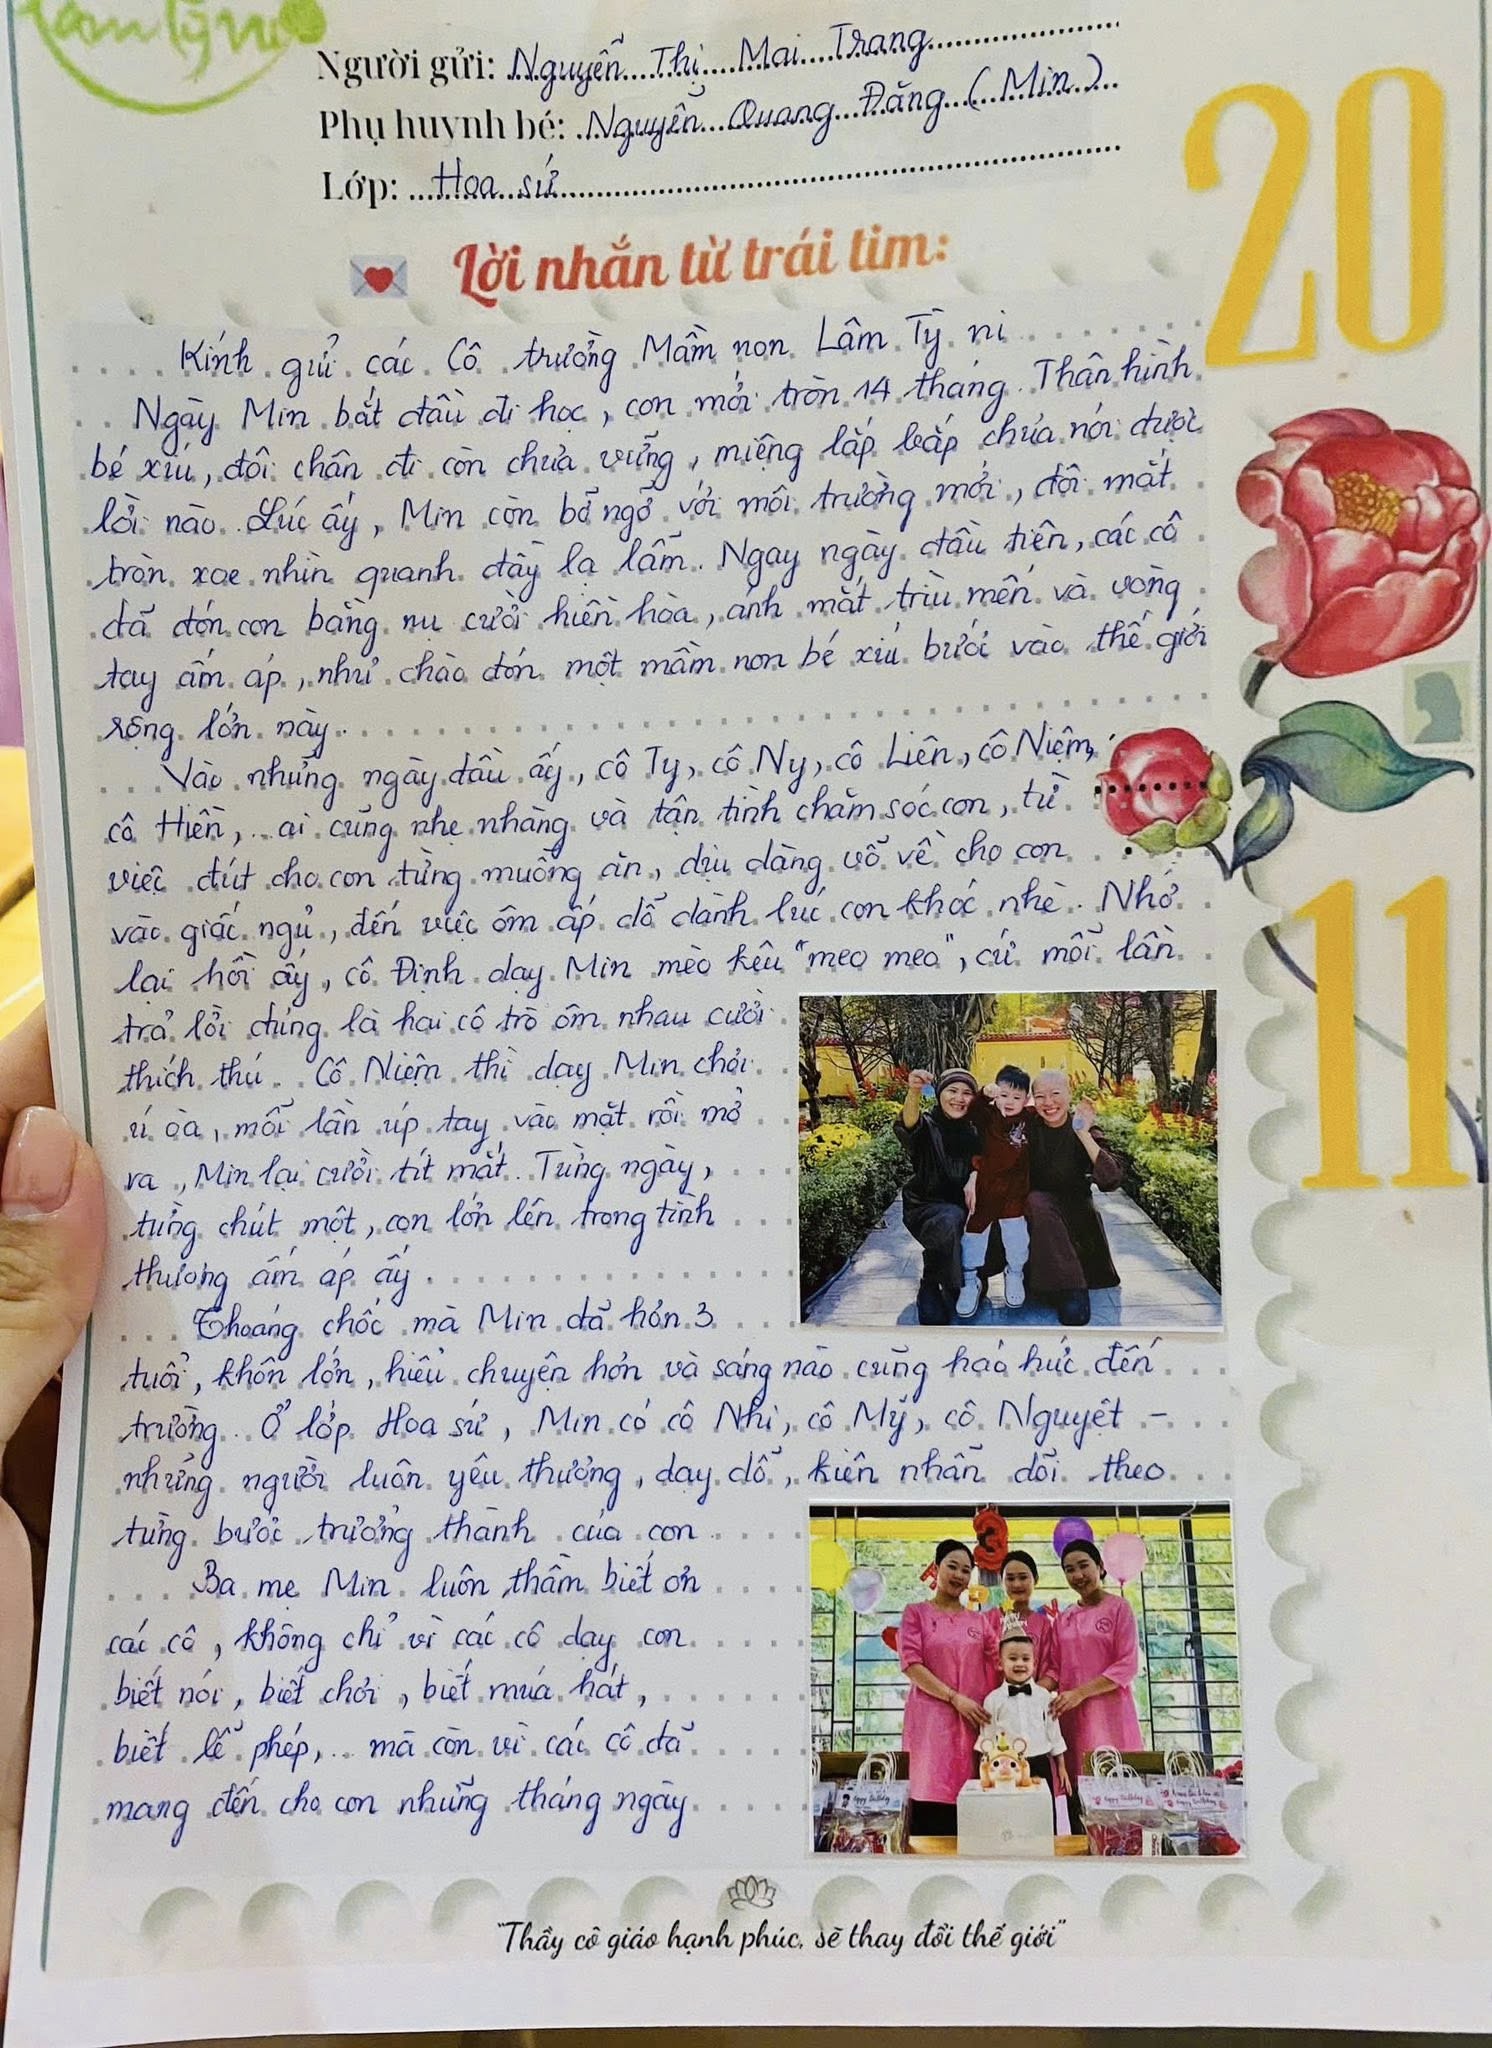 Lâm Tỳ Ni
Người gửi: Nguyễn Thị Mai Trang
Phụ huynh bé: Nguyễn Quang Đăng (Min)
Lớp: Hoa sứ
20
Lời nhắn từ trái tim:
Kính gửi các Cô trường Mầm non Lâm Tỳ ni
Ngày Min bắt đầu đi học, con mới tròn 14 tháng. Thân hình
bé xíu, đôi chân đi còn chưa vững, miệng lắp bắp chưa nói được
lời nào. Lúc ấy, Min còn bỡ ngỡ với môi trường mới, đôi mắt
tròn xoe nhìn quanh đầy lạ lẫm. Ngay ngày đầu tiên, các cô
đã đón con bằng nụ cười hiền hòa, ánh mắt trìu mến và vòng
tay ấm áp, như chào đón một mầm non bé xíu bước vào thế giới
rộng lớn này.
Vào những ngày đầu ấy, cô Ty, cô Ny, cô Liên, cô Niệm,
cô Hiền,.. ai cũng nhẹ nhàng và tận tình chăm sóc con, từ
việc đút cho con từng muỗng ăn, dịu dàng vỗ về cho con
vào giấc ngủ, đến việc ôm ấp dỗ dành lúc con khóc nhè. Nhớ
lại hồi ấy, cô Định dạy Min mèo kêu "meo meo", cứ mỗi lần
trả lời đúng là hai cô trò ôm nhau cười
thích thú. Cô Niệm thì dạy Min chơi
ú òa, mỗi lần úp tay vào mặt rồi mở
ra, Min lại cười tít mắt. Từng ngày,
từng chút một, con lớn lên trong tình
thương ấm áp ấy.
11
Thoáng chốc mà Min đã hơn 3
tuổi, khôn lớn, hiểu chuyện hơn và sáng nào cũng háo hức đến
trường. Ở lớp Hoa sứ, Min có cô Nhi, cô Mỹ, cô Nguyệt -
những người luôn yêu thương, dạy dỗ, kiên nhẫn dõi theo
từng bước trưởng thành của con
Ba mẹ Min luôn thầm biết ơn
các cô, không chỉ vì các cô dạy con
biết nói, biết chơi, biết múa hát,
biết lễ phép,.. mà còn vì các cô đã
mang đến cho con những tháng ngày
3
Happy Birthday
Happy Birthday
Happy Birthday
"Thầy cô giáo hạnh phúc, sẽ thay đổi thế giới"